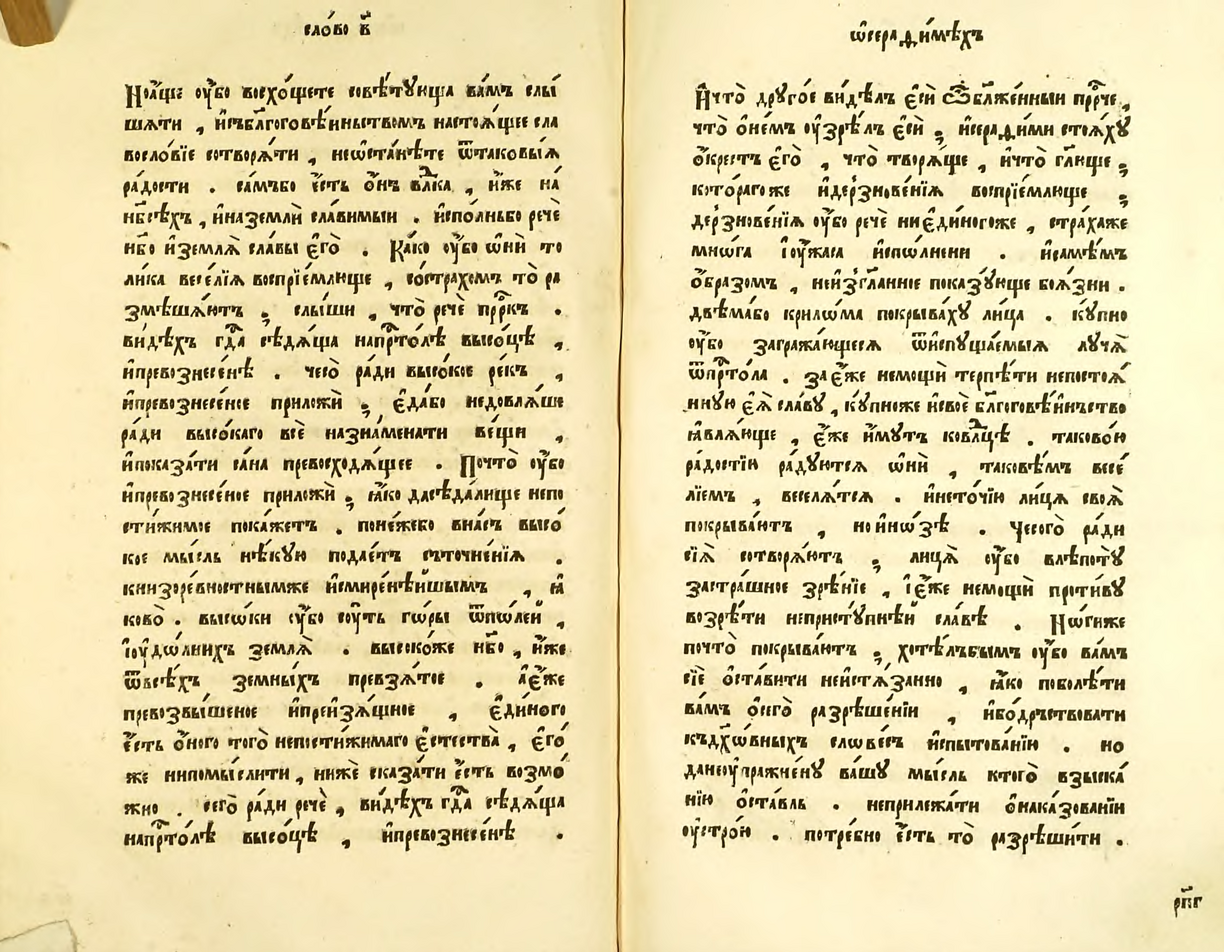 сло́во в҃
Но а҆́ще ᲂу҆́бо восхо́щете совѣ́тꙋюща ва́мъ слы́
шати , и҆съблагоговѣ́иньствомъ настоѧ́щее сла
восло́вїе сотворѧ́ти , неѡ҆ста́нѣте ѿтаковы́ѧ
ра́дости . са́мъбо є҆́сть ѻ҆́нъ влⷣка , и҆́же на
нб҃сѣ́хъ , и҆наземли̑ сла́вимыи . и҆спо́лньбо речѐ
нб҃о и҆землѧ̀ сла́вы є҆гѡ̀ . Ка́ко ᲂу҆́бо ѡ҆нѝ то
лика весе́лїѧ воспрїе́млюще , со́страхомъ то̀ ра
змѣша́ютъ ; слы́ши , что̀ речѐ прⷪ҇ркъ .
ви́дѣхъ гдⷭ҇а сѣдѧ́ща напрⷭ҇то́лѣ высо́цѣ ,
и҆превознесе́нѣ . чесо̀ ра́ди высо́кое ре́къ ,
и҆превознесе́ное приложѝ ; є҆да́бо недовлѧ́ше
ра́ди высо́каго всѐ назна́менати ве́щи ,
и҆показа́ти са́на превосходѧ́щее . Почто̀ ᲂу҆́бо
и҆превознесе́ное приложѝ ; ꙗ҆́ко дасѣда́лище непо
сти́жимое пока́жетъ . поне́жебо вна́съ высо́
кое мы́сль нѣ́кꙋю подае́тъ съточне́нїѧ .
книзоре́вностнымже и҆смире́нѣишымъ , ꙗ҆
ково̀ . высѡ́ки ᲂу҆́бо сꙋ́ть го́ры ѿпѡле́й ,
і҆ᲂу҆дѡ́лнихъ землѧ̀ . высо́коже нб҃о , и҆́же
ѿвсѣ́хъ земны́хъ превзѧ́тое . а҆є҆́же
превозвы́шеное и҆преизѧ́щное , є҆ди́ного
є҆́сть ѻ҆́ного того̀ непости́жимаго є҆стества̀ , є҆го́
же нипомы́слити , нижѐ сказа́ти є҆́сть возмо́
жно . сего̀ ра́ди речѐ , ви́дѣхъ гдⷭ҇а сѣдѧ́ща
напрⷭ҇то́лѣ высо́цѣ , и҆превознесе́нѣ .
ѡ҆серафи́мѣхъ
И҆что̀ дрꙋго́е ви́дѣлъ є҆сѝ ѽблаже́нныи прⷪ҇рче ,
что̀ ѻ҆не́мъ ᲂу҆зрѣ́лъ є҆сѝ ; и҆серафи́ми стоѧ́хꙋ
ѻ҆́крестъ є҆го̀ , что̀ творѧ́ще , и҆что̀ гл҃юще ;
кото́рагоже и҆дерзнове́нїѧ воспрїе́млюще ;
дерзнове́нїѧ ᲂу҆́бо речѐ ниє҆ди́ногоже , стра́хаже
мно́га і҆ᲂу҆́жаса и҆спо́лнени . и҆самѣ́мъ
ѻ҆́бразомъ , неи҆згл҃а́нное показꙋ́юще боѧ́зни .
двѣма́бо крило́ма покрыва́хꙋ лица̀ . кꙋ́пно
ᲂу҆́бо загражда́ющесѧ ѿиспꙋща́емыѧ лꙋча̀
ѿпрⷭ҇то́ла . зає҆́же немощѝ терпѣ́ти непостоѧ́
ннꙋю є҆ѧ̀ сла́вꙋ , кꙋ́пноже и҆своѐ благоговѣ́иньство
ꙗ҆влѧ́юще , є҆́же и҆́мꙋтъ ковлⷣцѣ̀ . таково́ю
ра́достїю ра́дꙋютсѧ ѡ҆нѝ , таковѣ́мъ весе́
лїемъ , веселѧ́тсѧ . и҆нето́чїю лица̀ своѧ̀
покрыва́ютъ , но и҆но́зѣ . Чесого̀ ра́ди
сїѧ̀ сотворѧ́ютъ ; лица̀ ᲂу҆́бо влѣпотꙋ̀
застра́шное зрѣ́нїе , і҆є҆́же немощѝ проти́вꙋ
возрѣ́ти непристꙋ́пнѣи сла́вѣ . Но́гиже
почто̀ покрыва́ютъ ; хотѣ́лъбымъ ᲂу҆́бо ва́мъ
сїѐ ѻ҆ста́вити неи҆стѧ́занно , ꙗ҆́ко поболѣ́ти
ва́мъ ѻ҆се́го разрѣше́нїи , и҆бо́дрьствовати
къдх҃о́вныхъ слове́съ и҆спытова́нїю . но
данеᲂу҆пражне́нꙋ ва́шꙋ мы́сль ктого̀ взыска́
нїю ѻ҆ста́вль . неприлежа́ти ѻ҆наказова́нїи
ᲂу҆стро́ю . потре́бно є҆́сть то̀ разрѣши́ти .
рп҃г